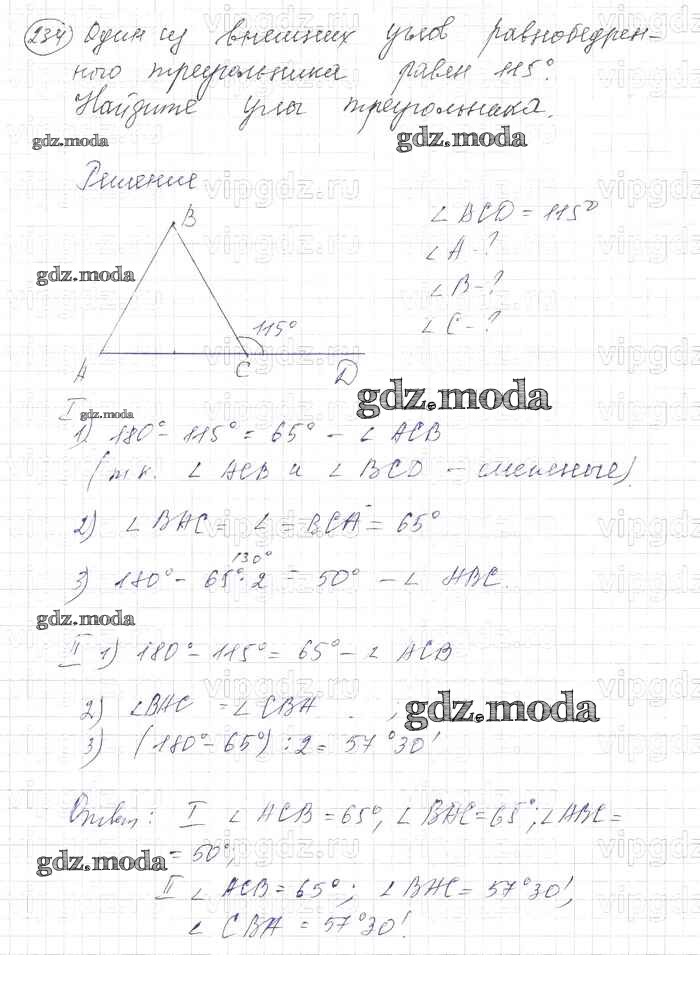 234 Один из внешних углов равнобедрен-
ного треугольника равен 115°.
Найдите углы треугольника.
gdz.moda
gdz.moda
Решение
vipgdz.ru
B
∠BCD = 115°
∠A - ?
gdz.moda
∠B - ?
∠C - ?
115°
A C D
gdz.moda
I
gdz.moda
1) 180° - 115° = 65° - ∠ACB
(т.к. ∠ACB и ∠BCD - смежные).
2) ∠BAC = ∠ = BCA = 65°
130°
3) 180° - 65°·2 = 50° - ∠ABC.
gdz.moda
II 1) 180° - 115° = 65° - ∠ACB
2) ∠BAC = ∠CBA
gdz.moda
3) (180° - 65°) : 2 = 57°30'
Ответ: I ∠ACB = 65°, ∠BAC = 65°; ∠ABC =
= 50°,
gdz.moda
II ∠ACB = 65°; ∠BAC = 57°30',
∠CBA = 57°30'.